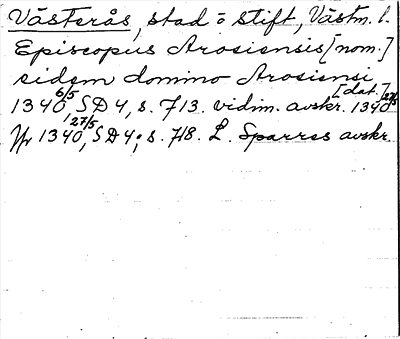 Västerås, stad o stift, Västm. l.
Episcopus Arosiensis [nom.]
eidem domino Arosiensi [dat.]
1340 6/5 SD 4, s. 713. vidim. avskr. 1340 27/5
Yfr 1340 27/5, SD 4, s. 718. L. Sparres avskr.